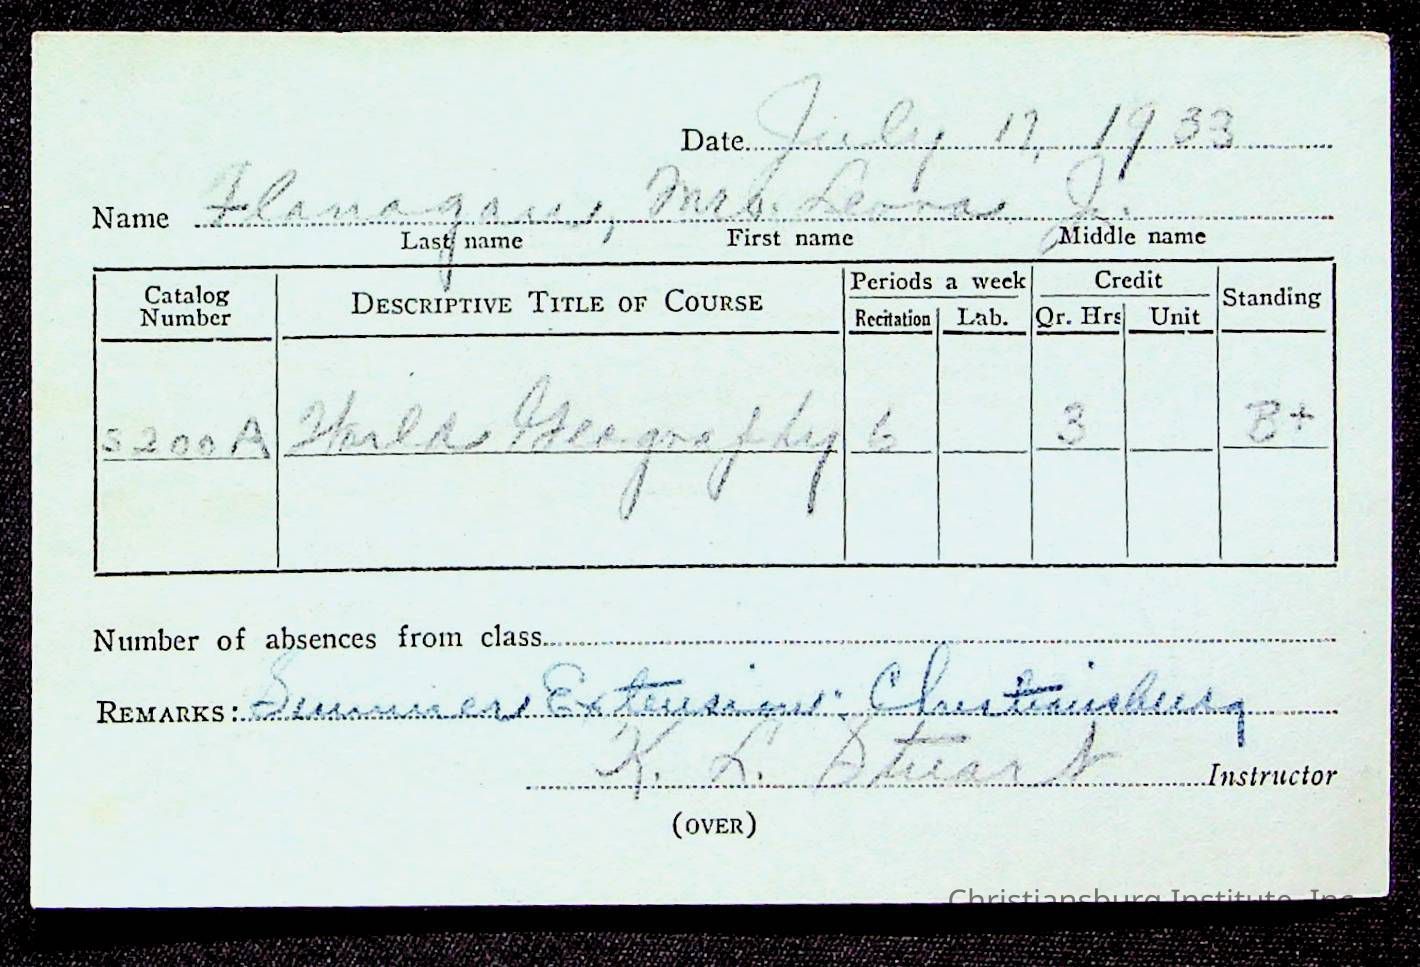 Date July 17, 1933
Name Flanagan, Mrs. Leona J.
Last name First name Middle name
Catalog Number DESCRIPTIVE TITLE OF COURSE Periods a week Credit Standing
Recitation Lab. Qr. Hrs Unit
S200A World Geography 6 3 B+
Number of absences from class
REMARKS: Summer Extension: Christiansburg
K. L. Stuart Instructor
(OVER)
Christiansburg Institute, Inc.